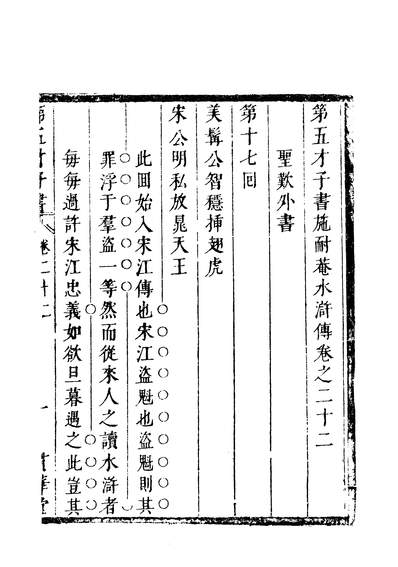 第五才子書施耐菴水滸傳卷之二十二
聖歎外書
第十七回
美髯公智穩挿翅虎
宋公明私放晁天王
此回始入宋江傳也宋江盜魁也盜魁則其
罪浮于羣盜一等然而從來人之讀水滸者
每每過許宋江忠義如欲旦暮遇之此豈其
第五才子書 卷二十二 一 貫華堂